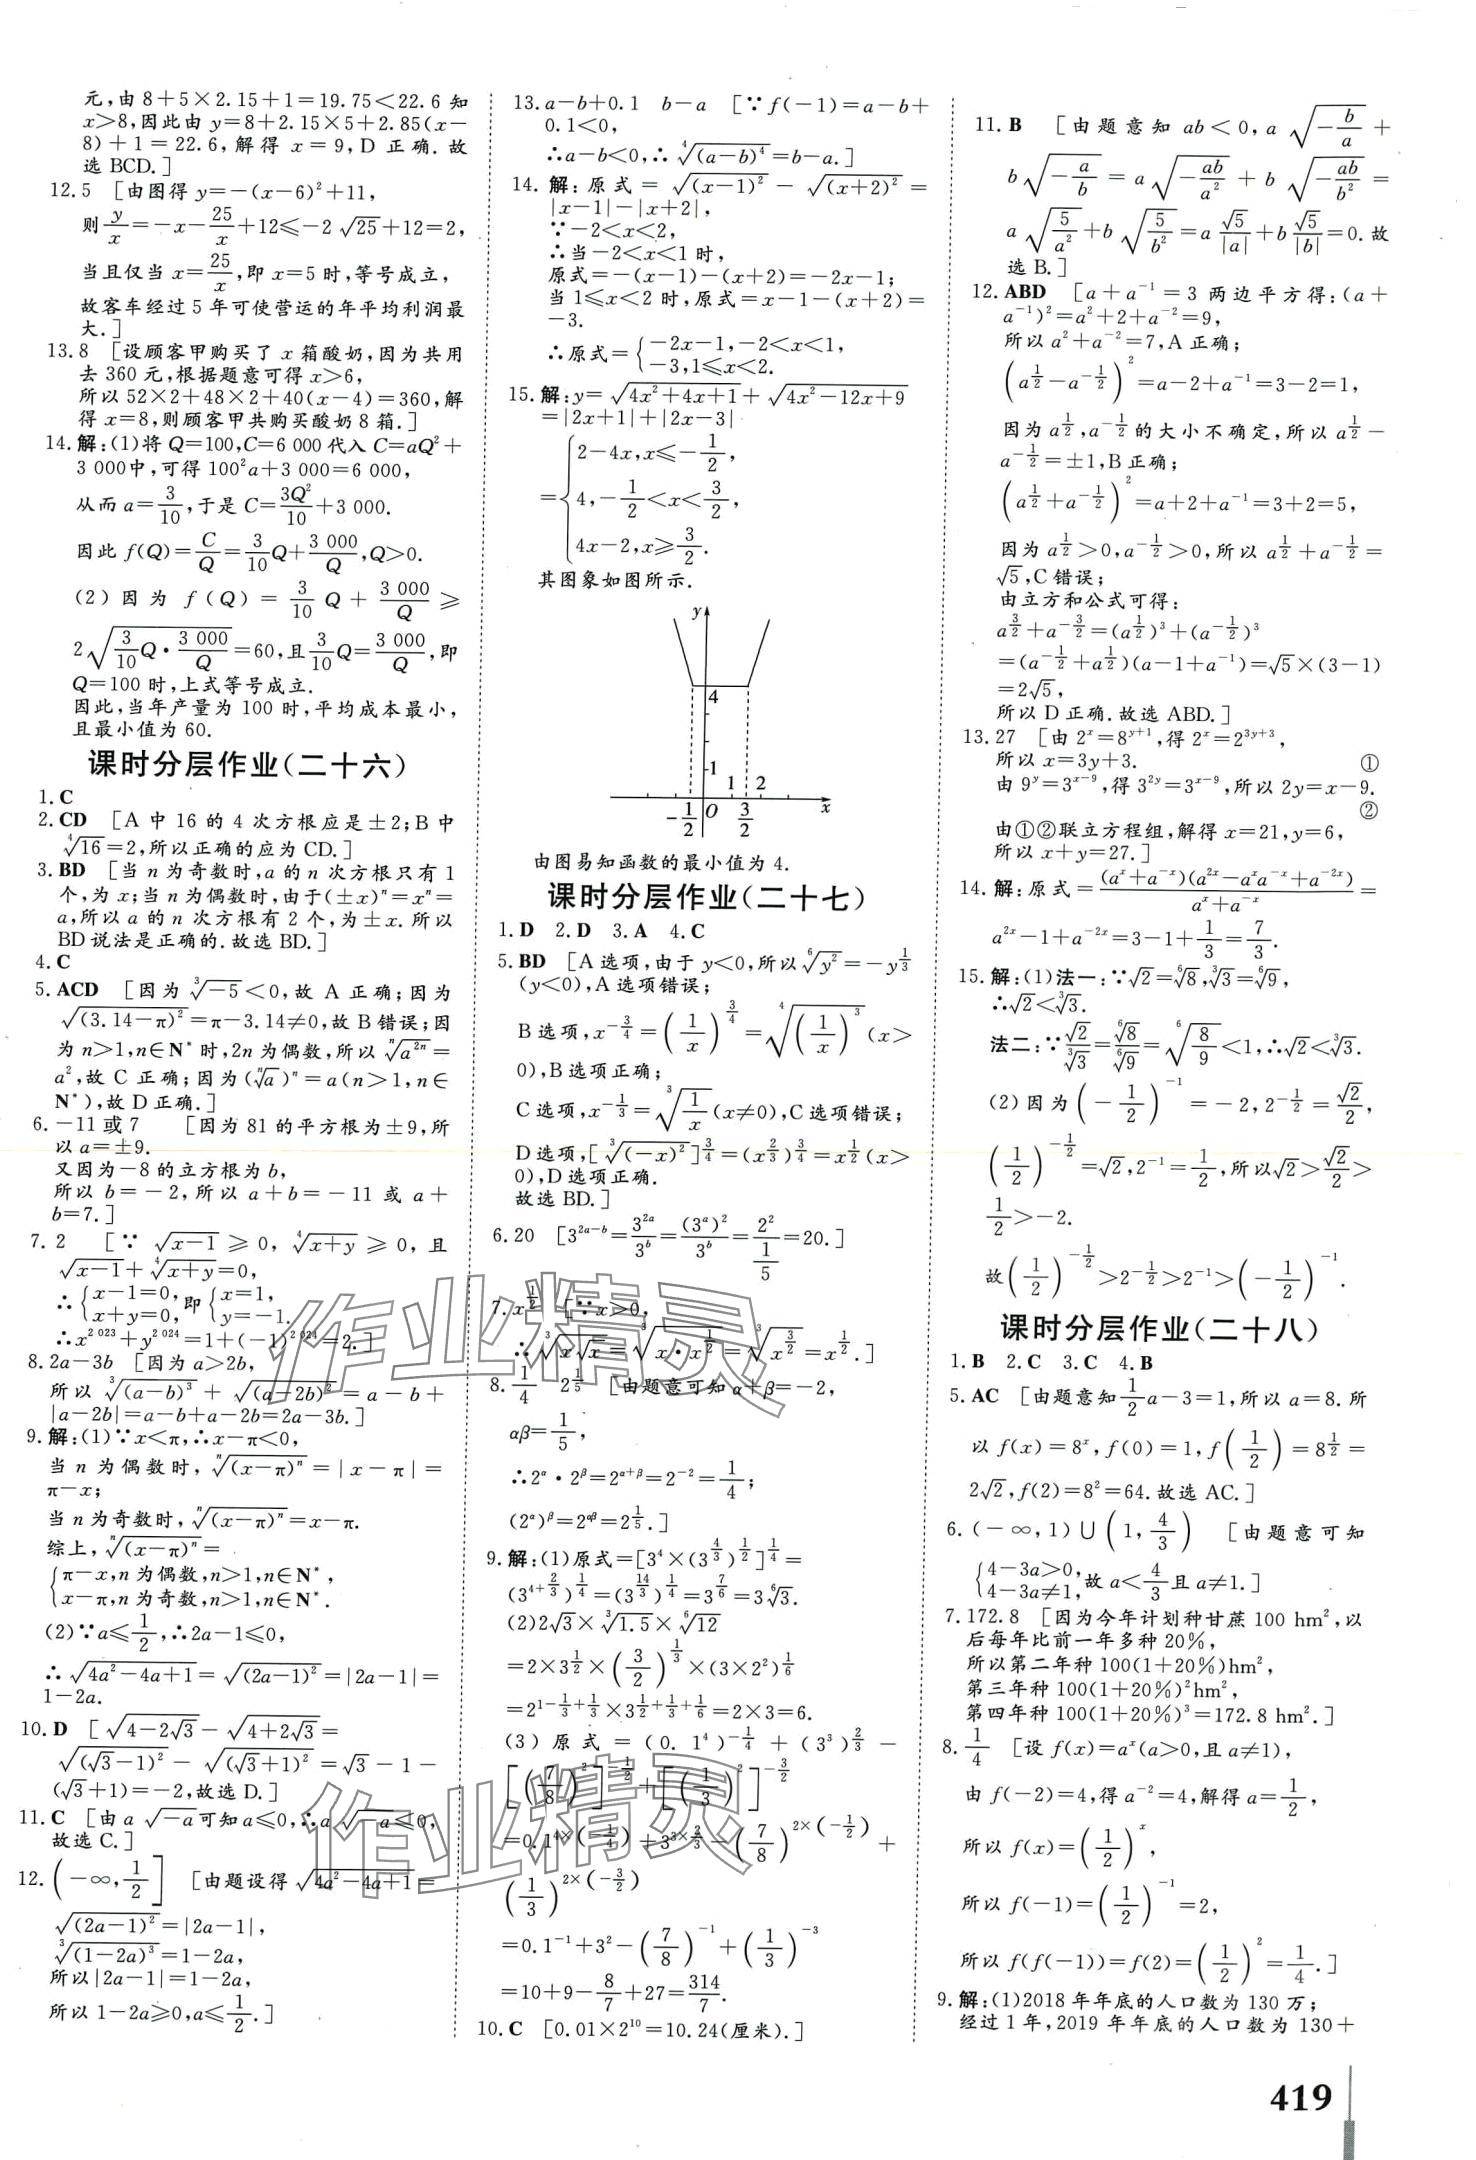 元,由 8+5×2.15+1=19.75<22.6 知
x>8,因此由 y=8+2.15×5+2.85(x-
8)+1=22.6,解得 x=9,D 正确.故
选 BCD.]
12.5 [由图得 y=-(x-6)²+11,
则 y/x=-x-25/x+12≤-2√25+12=2,
当且仅当 x=25/x,即 x=5 时,等号成立,
故客车经过 5 年可使营运的年平均利润最
大.]
13.8 [设顾客甲购买了 x 箱酸奶,因为共用
去 360 元,根据题意可得 x>6,
所以 52×2+48×2+40(x-4)=360,解
得 x=8,则顾客甲共购买酸奶 8 箱.]
14.解:(1)将 Q=100,C=6 000 代入 C=aQ²+
3 000中,可得 100²a+3 000=6 000,
从而 a=3/10,于是 C=3Q²/10+3 000.
因此 f(Q)=C/Q=3/10Q+3 000/Q,Q>0.
(2)因为 f(Q)=3/10Q+3 000/Q≥
2√(3/10Q·3 000/Q)=60,且3/10Q=3 000/Q,即
Q=100 时,上式等号成立.
因此,当年产量为 100 时,平均成本最小,
且最小值为 60.
课时分层作业(二十六)
1.C
2.CD [A 中 16 的 4 次方根应是±2;B 中
⁴√16=2,所以正确的应为 CD.]
3.BD [当 n 为奇数时,a 的 n 次方根只有 1
个,为 x;当 n 为偶数时,由于(±x)ⁿ=xⁿ=
a,所以 a 的 n 次方根有 2 个,为±x.所以
BD 说法是正确的.故选 BD.]
4.C
5.ACD [因为 ³√-5<0,故 A 正确;因为
√(3.14-π)²=π-3.14≠0,故 B 错误;因
为 n>1,n∈N*时,2n 为偶数,所以 ⁿ√a²ⁿ=
a²,故 C 正确;因为(ⁿ√a)ⁿ=a(n>1,n∈
N*),故 D 正确.]
6.-11 或 7 [因为 81 的平方根为±9,所
以 a=±9.
又因为-8 的立方根为 b,
所以 b=-2,所以 a+b=-11 或 a+
b=7.]
7.2 [∵√(x-1)≥0,⁴√(x+y)≥0,且
√(x-1)+⁴√(x+y)=0,
∴{x-1=0,x+y=0,即{x=1,y=-1.
∴x²⁰²³+y²⁰²⁴=1+(-1)²⁰²⁴=2.]
8.2a-3b [因为 a>2b,
所以 ³√(a-b)³+√(a-2b)²=a-b+
|a-2b|=a-b+a-2b=2a-3b.]
9.解:(1)∵x<π,∴x-π<0,
当 n 为偶数时,ⁿ√(x-π)ⁿ=|x-π|=
π-x;
当 n 为奇数时,ⁿ√(x-π)ⁿ=x-π.
综上,ⁿ√(x-π)ⁿ=
{π-x,n 为偶数,n>1,n∈N*,
x-π,n 为奇数,n>1,n∈N*.
(2)∵a≤1/2,∴2a-1≤0,
∴√(4a²-4a+1)=√(2a-1)²=|2a-1|=
1-2a.
10.D [√(4-2√3)-√(4+2√3)=
√(√3-1)²-√(√3+1)²=√3-1-
(√3+1)=-2,故选 D.]
11.C [由 a√-a可知 a≤0,∴a√-a≤0,
故选 C.]
12.(-∞,1/2] [由题设得√(4a²-4a+1)=
√(2a-1)²=|2a-1|,
³√(1-2a)³=1-2a,
所以|2a-1|=1-2a,
所以 1-2a≥0,a≤1/2.]
13.a-b+0.1 b-a [∵f(-1)=a-b+
0.1<0,
∴a-b<0,∴⁴√(a-b)⁴=b-a.]
14.解:原式=√(x-1)²-√(x+2)²=
|x-1|-|x+2|,
∵-2<x<2,
∴当-2<x<1 时,
原式=-(x-1)-(x+2)=-2x-1;
当 1≤x<2 时,原式=x-1-(x+2)=
-3.
∴原式={-2x-1,-2<x<1,
-3,1≤x<2.
15.解:y=√(4x²+4x+1)+√(4x²-12x+9)
=|2x+1|+|2x-3|
={2-4x,x≤-1/2,
4,-1/2<x<3/2,
4x-2,x≥3/2.
其图象如图所示.
y
4
1
1 2
-1/2 O 3/2 x
由图易知函数的最小值为 4.
课时分层作业(二十七)
1.D 2.D 3.A 4.C
5.BD [A 选项,由于 y<0,所以 ⁶√y²=-y^(1/3)
(y<0),A 选项错误;
B 选项,x^(-3/4)=(1/x)^(3/4)=⁴√(1/x)³(x>
0),B 选项正确;
C 选项,x^(-1/3)=³√(1/x)(x≠0),C 选项错误;
D 选项,[³√(-x)²]^(3/4)=(x^(2/3))^(3/4)=x^(1/2)(x>
0),D 选项正确.
故选 BD.]
6.20 [3^(2a-b)=3^(2a)/3^b=(3^a)²/3^b=2²/(1/5)=20.]
7.x^(1/2) [∵x>0,
∴³√(x√x)=³√(x·x^(1/2))=³√(x^(3/2))=x^(1/2).]
8.1/4 2^(1/5) [由题意可知 α+β=-2,
αβ=1/5,
∴2^α·2^β=2^(α+β)=2⁻²=1/4;
(2^α)^β=2^(αβ)=2^(1/5).]
9.解:(1)原式=[3⁴×(3^(4/3))^(1/2)]^(1/4)=
(3^(4+2/3))^(1/4)=(3^(14/3))^(1/4)=3^(7/6)=3⁶√3.
(2)2√3×³√1.5×⁶√12
=2×3^(1/2)×(3/2)^(1/3)×(3×2²)^(1/6)
=2^(1-1/3+1/3)×3^(1/2+1/3+1/6)=2×3=6.
(3)原式=(0.1⁴)^(-1/4)+(3³)^(2/3)-
[(7/8)²]^(-1/2)+[(1/3)²]^(-3/2)
=0.1^(4×(-1/4))+3^(3×2/3)-(7/8)^(2×(-1/2))+
(1/3)^(2×(-3/2))
=0.1⁻¹+3²-(7/8)⁻¹+(1/3)⁻³
=10+9-8/7+27=314/7.
10.C [0.01×2¹⁰=10.24(厘米).]
11.B [由题意知 ab<0,a√(-b/a)+
b√(-a/b)=a√(-ab/a²)+b√(-ab/b²)=
a√(5/a²)+b√(5/b²)=a√5/|a|+b√5/|b|=0.故
选 B.]
12.ABD [a+a⁻¹=3 两边平方得:(a+
a⁻¹)²=a²+2+a⁻²=9,
所以 a²+a⁻²=7,A 正确;
(a^(1/2)-a^(-1/2))²=a-2+a⁻¹=3-2=1,
因为 a^(1/2),a^(-1/2)的大小不确定,所以 a^(1/2)-
a^(-1/2)=±1,B 正确;
(a^(1/2)+a^(-1/2))²=a+2+a⁻¹=3+2=5,
因为 a^(1/2)>0,a^(-1/2)>0,所以 a^(1/2)+a^(-1/2)=
√5,C 错误;
由立方和公式可得:
a^(3/2)+a^(-3/2)=(a^(1/2))³+(a^(-1/2))³
=(a^(-1/2)+a^(1/2))(a-1+a⁻¹)=√5×(3-1)
=2√5,
所以 D 正确.故选 ABD.]
13.27 [由 2^x=8^(y+1),得 2^x=2^(3y+3),
所以 x=3y+3. ①
由 9^y=3^(x-9),得 3^(2y)=3^(x-9),所以 2y=x-9.
②
由①②联立方程组,解得 x=21,y=6,
所以 x+y=27.]
14.解:原式=(a^x+a^(-x))(a^(2x)-a^x a^(-x)+a^(-2x))/(a^x+a^(-x))=
a^(2x)-1+a^(-2x)=3-1+1/3=7/3.
15.解:(1)法一:∵√2=⁶√8,³√3=⁶√9,
∴√2<³√3.
法二:∵√2/³√3=⁶√8/⁶√9=⁶√(8/9)<1,∴√2<³√3.
(2)因为(-1/2)⁻¹=-2,2^(-1/2)=√2/2,
(1/2)^(-1/2)=√2,2⁻¹=1/2,所以√2>√2/2>
1/2>-2.
故(1/2)^(-1/2)>2^(-1/2)>2⁻¹>(-1/2)⁻¹.
课时分层作业(二十八)
1.B 2.C 3.C 4.B
5.AC [由题意知1/2a-3=1,所以 a=8.所
以 f(x)=8^x,f(0)=1,f(1/2)=8^(1/2)=
2√2,f(2)=8²=64.故选 AC.]
6.(-∞,1)∪(1,4/3) [由题意可知
{4-3a>0,4-3a≠1,故 a<4/3且 a≠1.]
7.172.8 [因为今年计划种甘蔗 100 hm²,以
后每年比前一年多种 20%,
所以第二年种 100(1+20%)hm²,
第三年种 100(1+20%)²hm²,
第四年种 100(1+20%)³=172.8 hm².]
8.1/4 [设 f(x)=a^x(a>0,且 a≠1),
由 f(-2)=4,得 a⁻²=4,解得 a=1/2,
所以 f(x)=(1/2)^x,
所以 f(-1)=(1/2)⁻¹=2,
所以 f(f(-1))=f(2)=(1/2)²=1/4.]
9.解:(1)2018 年年底的人口数为 130 万;
经过 1 年,2019 年年底的人口数为 130+
419
作业精灵
作业精灵